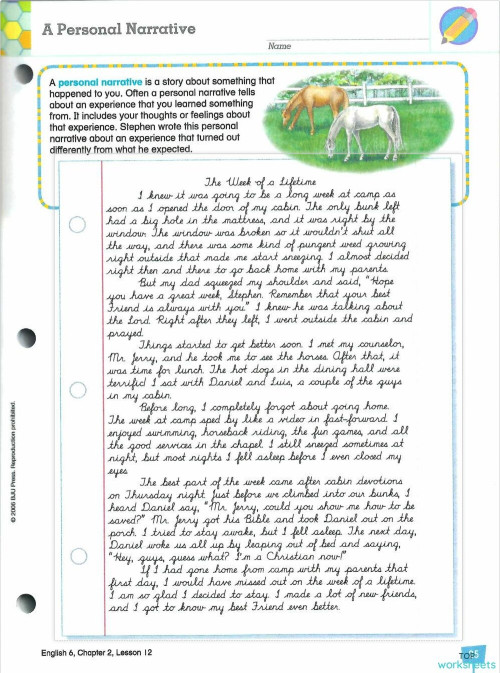 A Personal Narrative
Name
A personal narrative is a story about something that
happened to you. Often a personal narrative tells
about an experience that you learned something
from. It includes your thoughts or feelings about
that experience. Stephen wrote this personal
narrative about an experience that turned out
differently from what he expected.
The Week of a Lifetime
I knew it was going to be a long week at camp as
soon as I opened the door of my cabin. The only bunk left
had a big hole in the mattress, and it was right by the
window. The window was broken so it wouldn't shut all
the way, and there was some kind of pungent weed growing
right outside that made me start sneezing. I almost decided
right then and there to go back home with my parents.
But my dad squeezed my shoulder and said, "Hope
you have a great week, Stephen. Remember that your best
Friend is always with you." I knew he was talking about
the Lord. Right after they left, I went outside the cabin and
prayed.
Things started to get better soon. I met my counselor,
Mr. Jerry, and he took me to see the horses. After that, it
was time for lunch. The hot dogs in the dining hall were
terrific! I sat with Daniel and Luis, a couple of the guys
in my cabin.
Before long, I completely forgot about going home.
The week at camp sped by like a video in fast-forward. I
enjoyed swimming, horseback riding, the fun games, and all
the good services in the chapel. I still sneezed sometimes at
night, but most nights I fell asleep before I even closed my
eyes.
The best part of the week came after cabin devotions
on Thursday night. Just before we climbed into our bunks, I
heard Daniel say, "Mr. Jerry, could you show me how to be
saved?" Mr. Jerry got his Bible and took Daniel out on the
porch. I tried to stay awake, but I fell asleep. The next day,
Daniel woke us all up by leaping out of bed and saying,
"Hey, guys, guess what? I'm a Christian now!"
If I had gone home from camp with my parents that
first day, I would have missed out on the week of a lifetime.
I am so glad I decided to stay. I made a lot of new friends,
and I got to know my best Friend even better.
© 2008 BJU Press. Reproduction prohibited.
English 6, Chapter 2, Lesson 12
TOP
worksheets